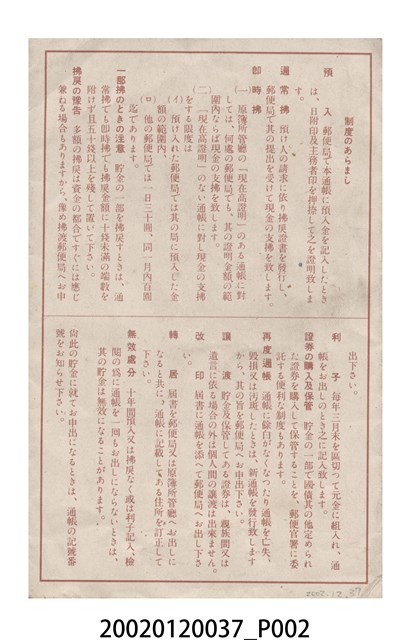 制度のあらまし
預入 郵便局で本通帳に預入金を記入したとき
は、日附印及主務者印を押捺して之を證明致しま
す。
通常拂 預け人の請求に依り拂戻證書を發行し、
郵便局で其の提出を受けて現金の支拂を致します。
即時拂
(一) 原簿所管廳の「現在高證明」のある通帳に對
しては、何處の郵便局でも、其の證明金額の範
圍内ならば現金の支拂を致します。
(二) 「現在高證明」のない通帳に對し現金の支拂
をする限度は
(イ) 預け入れた郵便局では其の局に預入した金
額の範圍内、
(ロ) 他の郵便局では一日三十圓、同一月内百圓
迄であります。
一部拂のときの注意 貯金の一部を拂戻すときは、通
常拂でも即時拂でも拂戻金額に十錢未滿の端數を
附けず且五十錢以上を殘して置いて下さい。
拂戻の豫告 多額の拂戻は資金の都合ですぐには應じ
兼ねる場合もありますから、豫め拂渡郵便局へお申
出下さい。
利子 毎年三月末を區切つて元金に組入れ、通
帳をお出しのとき之に記入致します。
證券の購入及保管 貯金の一部で國債其の他定められ
た證券を購入して保管することを、郵便官署に委
託する便利な制度もあります。
再度通帳 通帳に餘白がなくなつたり通帳を亡失、
毀損又は汚斑したときは、新通帳を發行致します
から、其の旨を郵便局へお申出下さい。
讓渡 貯金及保管してある證券は、親族間又は
遺言に依る場合の外は個人間の讓渡は出來ません。
改印 届書に通帳を添へて郵便局へお出し下さ
い。
轉居 届書を郵便局又は原簿所管廳へお出しに
なると共に、通帳に記載してある住所を訂正して
下さい。
無效處分 十年間預入又は拂戻なく或は利子記入、檢
閲の爲に通帳を一回もお出しにならないときは、
其の貯金は無效になることがあります。
尚此の貯金に就てお申出になるときは、通帳の記號番
號をお知らせ下さい。
20020120037_P002